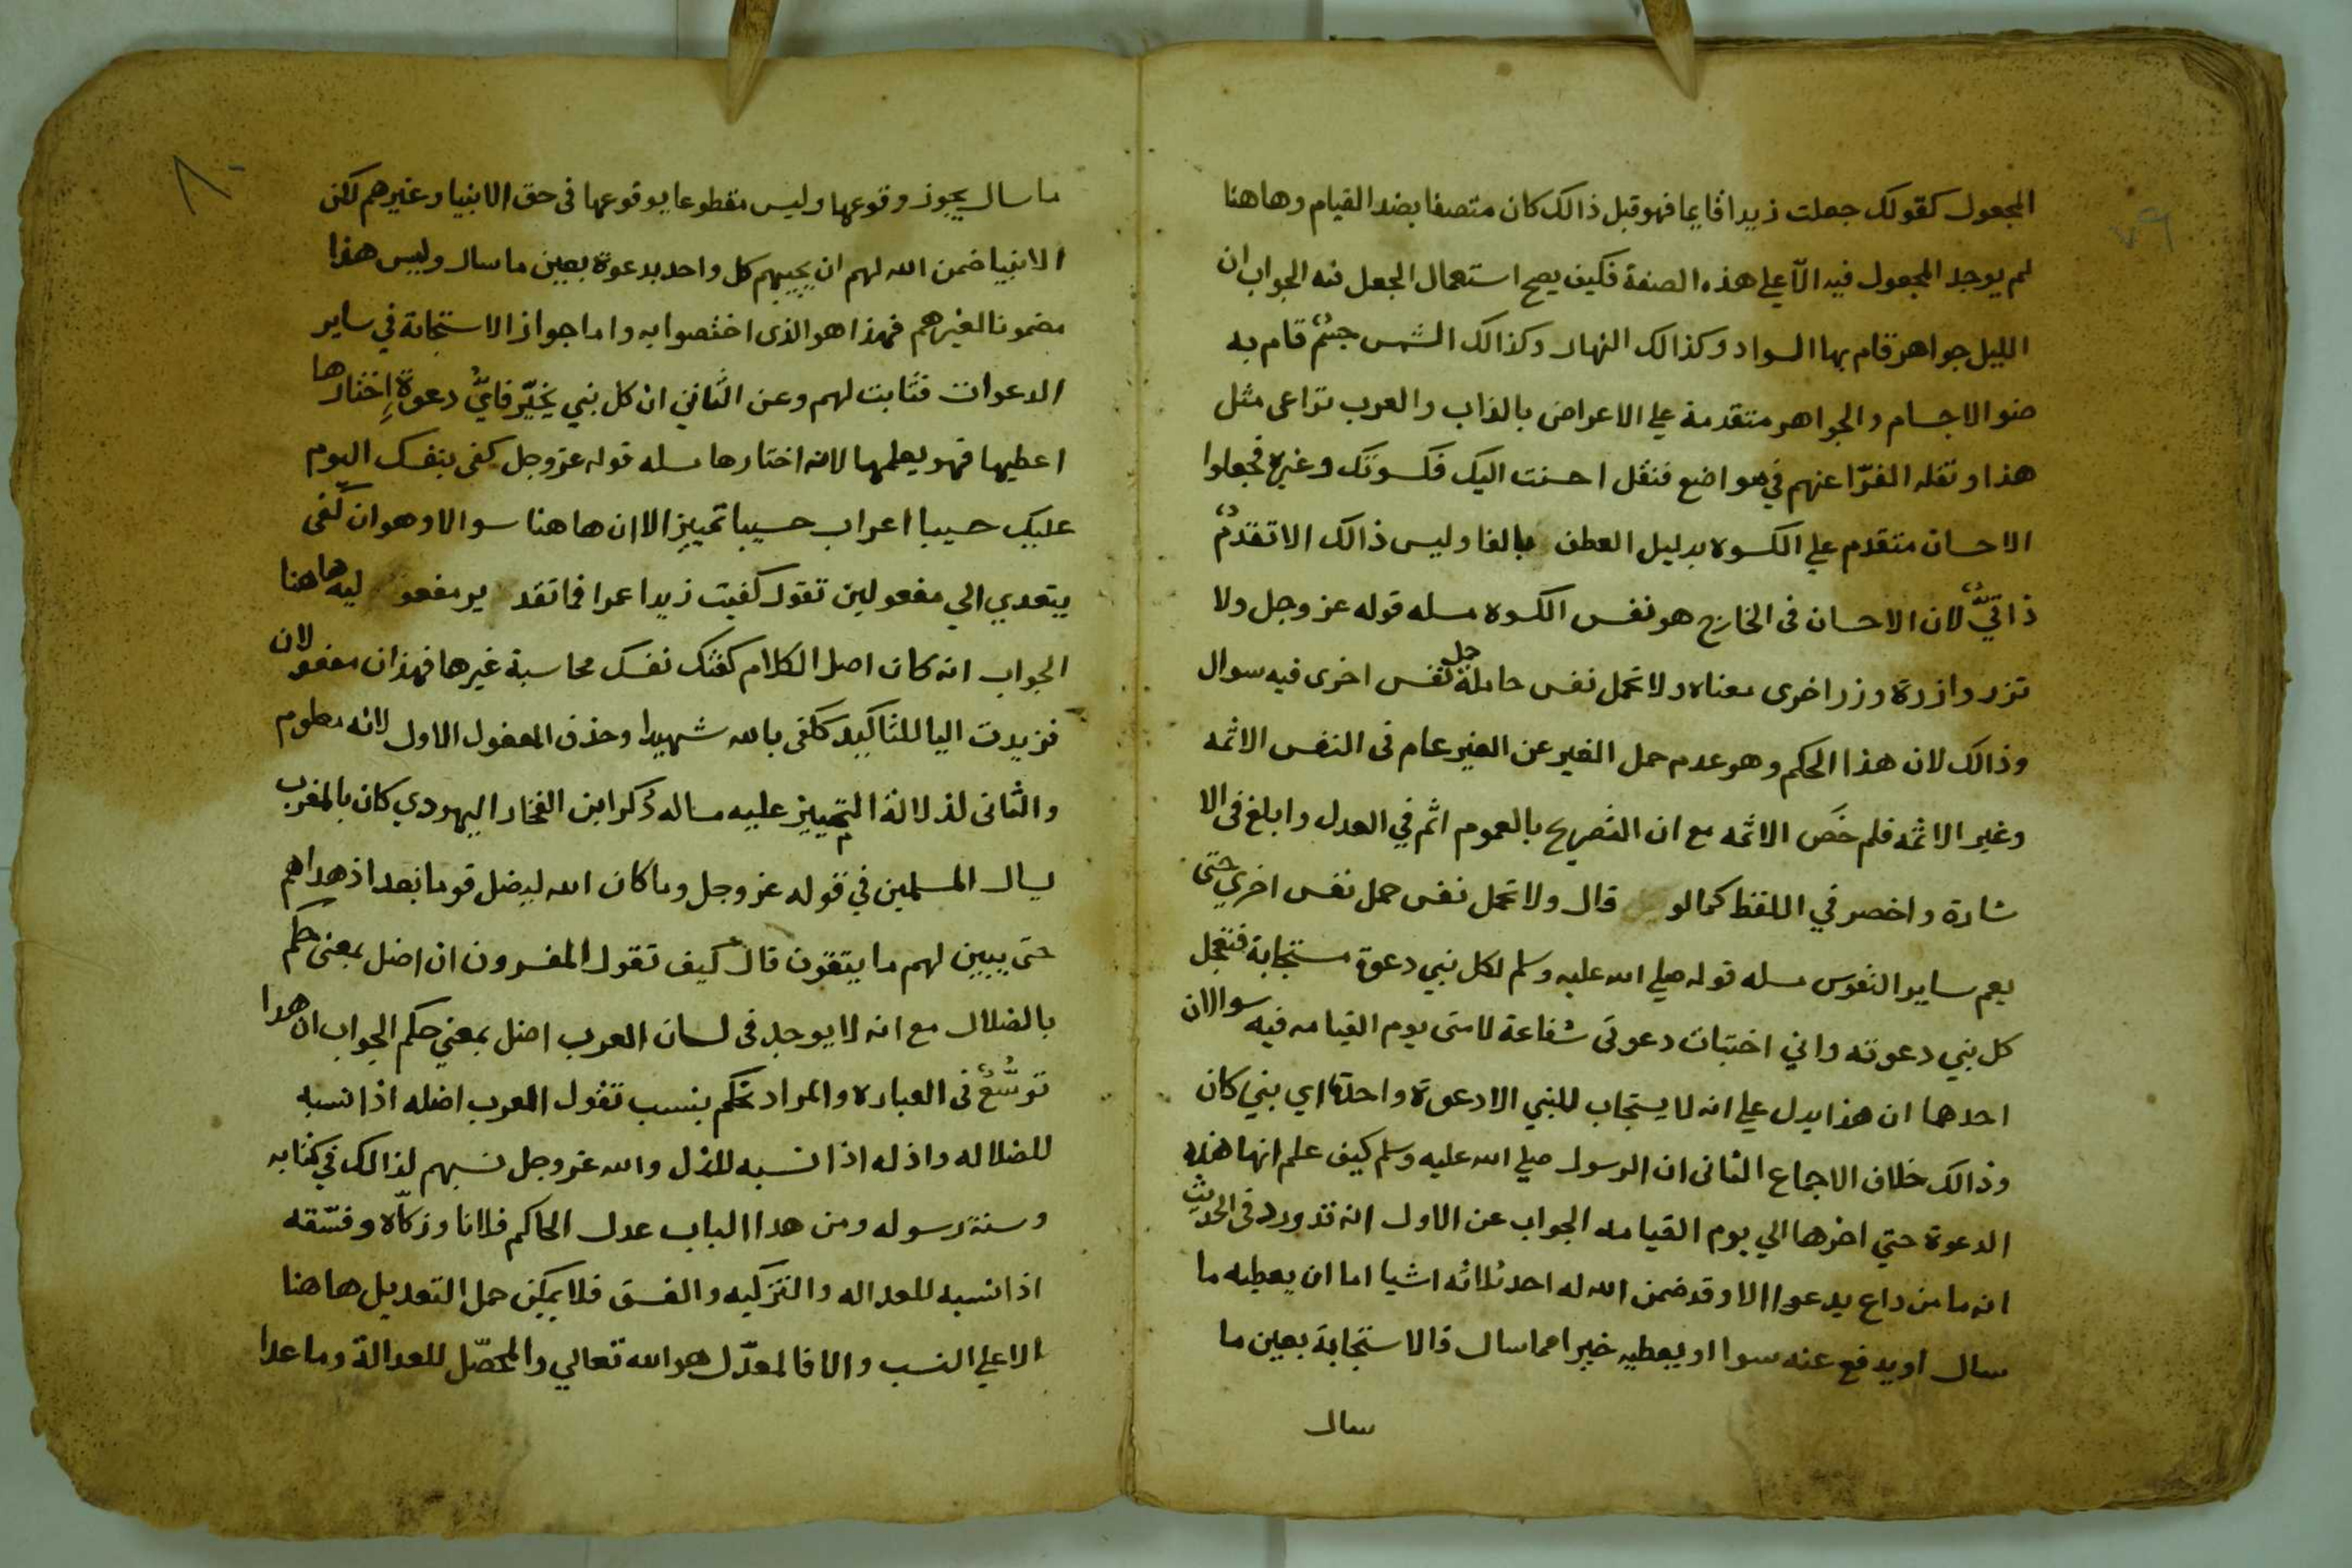 ٧٩
المجعول كقولك جعلت زيدا قايما فهو قبل ذالك كان متصفا بضد القيام وهاهنا
لم يوجد المجعول فيه الّا علي هذه الصفة فكيف يصح استعمال الجعل فيه الجواب ان
الليل جواهر قام بها السواد وكذالك النهار وكذالك الشمس جسمٌ قام به
ضو الاجسام والجواهر متقدمة علي الاعراض بالذات والعرب تراعى مثل
هذا ونقله الفرّا عنهم في مواضع فنقل احسنت اليك فكسوتك وغيره فجعلوا
الاحسان متقدم علي الكسوه بدليل العطف بالفا وليس ذالك الا تقدمٌ
ذاتيٌّ لان الاحسان فى الخارج هو نفس الكسوه مسله قوله عز وجل ولا
تزر وازرة وزر اخرى معناه ولا تحمل نفس حاملة حمل نفس اخرى فيه سوال
وذالك لان هذا الحكم وهو عدم حمل الغير عن الغير عام فى النفس الاثمه
وغير الاثمه فلم خَص الاثمه مع ان التصريح بالعموم اتم في العدل وابلغ فى الا
شارة واخصر في اللفظ كما لو قال ولا تحمل نفس حمل نفس اخري حتى
يعم ساير النفوس مسله قوله صلي الله عليه وسلم لكل نبي دعوة مستجابة فتعجل
كل نبي دعوته واني اختبات دعوتى شفاعة لامتى يوم القيامه فيه سوالان
احدهما ان هذا يدل علي انه لا يستجاب للنبي الا دعوة واحدة اي نبي كان
وذالك خلاف الاجماع الثانى ان الرسول صلي الله عليه وسلم كيف علم انها هذه
الدعوة حتي اخرها الي يوم القيامه الجواب عن الاول انه قد ورد فى الحديث
انه ما من داع يدعوا الا وقد ضمن الله له احد ثلاثه اشيا اما ان يعطيه ما
سال او يدفع عنه سوا او يعطيه خيرا مما سال فالاستجابة بعين ما
سال
٨٠
ما سال يجوز وقوعها وليس مقطوعا بوقوعها فى حق الانبيا وغيرهم لكن
الانبيا ضمن الله لهم ان يجيبهم كل واحد بدعوة بعين ما سال وليس هذا
مضمونا لغيرهم فهذا هو الذى اختصوا به واما جواز الاستجابة في ساير
الدعوات فثابت لهم وعن الثاني ان كل نبي يخيّر فايُّ دعوةٍ اختارها
اعطيها فهو يعلمها لانه اختارها مسله قوله عز وجل كفى بنفسك اليوم
عليك حسيبا اعراب حسيبا تمييز الا ان هاهنا سوالا وهو ان كَفَى
يتعدي الي مفعولين تقول كفيت زيدا عمرا فما تقد ير مفعو ليه هاهنا
الجواب انه كان اصل الكلام كفتك نفسك محاسبة غيرها فهذان مفعولان
فزيدت اليا للتاكيد ككفى بالله شهيدا وحذف المفعول الاول لانه معلوم
والثانى لدلالة التمييز عليه مساله ذكر ابن الفخار اليهودي كان بالمغرب
يسال المسلمين في قوله عز وجل وما كان الله ليضل قوما بعد اذ هداهم
حتى يبين لهم ما يتقون قال كيف تقول المفسرون ان اضل بمعنى حكم
بالضلال مع انه لا يوجد فى لسان العرب اضل بمعني حكم الجواب ان هدا
توسُّعٌ فى العباره والمراد نحكم بنسب تقول العرب اضله اذا نسبه
للضلاله واذله اذا نسبه للذل والله عز وجل نسبهم لذالك في كتابه
وسنة رسوله ومن هدا الباب عدل الحاكم فلانا وزكّاه وفسّقه
اذا نسبه للعداله والتزكيه والفسق فلا يمكن حمل التعديل هاهنا
الا علي النسب والا فالمعدّل هو الله تعالي والمحصّل للعدالة وما عدا